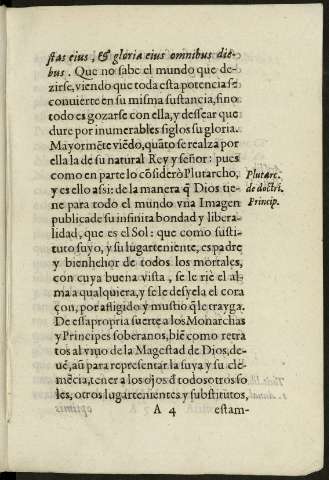 ſtas eius, & gloria eius omnibus die-
bus. Que no ſabe el mundo que de-
zirſe, viendo que toda eſta potencia ſe
conuierte en ſu miſma ſuſtancia, ſino
todo es gozarſe con ella, y deſſear que
dure por inumerables ſiglos ſu gloria.
Mayormẽte viẽdo, quãto ſe realza por
ella la de ſu natural Rey y ſeñor: pues
como en parte lo cõſiderò Plutarcho,
y es ello aſsi: de la manera q̃ Dios tie-
ne para todo el mundo vna Imagen
publica de ſu infinita bondad y libera-
lidad, que es el Sol: que como ſuſti-
tuto ſuyo, y ſu lugarteniente, es padre
y bienhechor de todos los mortales,
con cuya buena viſta, ſe le riè el al-
ma a qualquiera, y ſe le deſvela el cora
çon, por afligido y muſtio q̃ le trayga.
De eſta propria ſuerte a los Monarchas
y Principes ſoberanos, biẽ como retra
tos al viuo de la Mageſtad de Dios, de-
uẽ, aũ para repreſentar la ſuya y ſu cle-
mẽcia, tener a los ojos đ todos otros ſo
les, otros lugartenientes y ſubſtitutos,
A 4 eſtam-
Plutarc.
de doctri.
Princip.